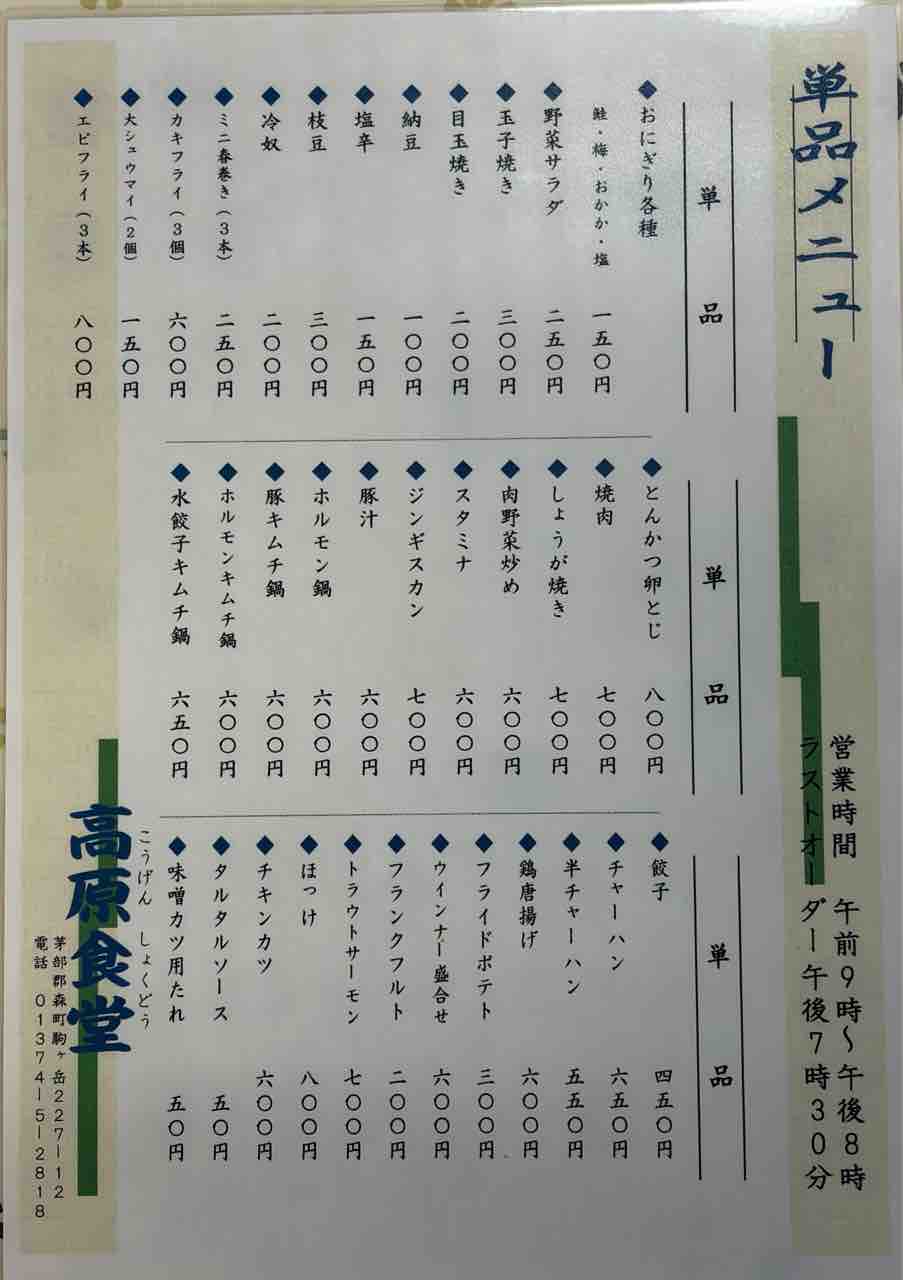 単品メニュー
営業時間 午前9時〜午後8時
ラストオーダー午後7時30分
単品
◆おにぎり各種
鮭・梅・おかか・塩 一五〇円
◆野菜サラダ 二五〇円
◆玉子焼き 三〇〇円
◆目玉焼き 二〇〇円
◆納豆 一〇〇円
◆塩辛 一五〇円
◆枝豆 三〇〇円
◆冷奴 二〇〇円
◆ミニ春巻き(3本) 二五〇円
◆カキフライ(3個) 六〇〇円
◆大シュウマイ(2個) 一五〇円
◆エビフライ(3本) 八〇〇円
単品
◆とんかつ卵とじ 八〇〇円
◆焼肉 七〇〇円
◆しょうが焼き 七〇〇円
◆肉野菜炒め 六〇〇円
◆スタミナ 六〇〇円
◆ジンギスカン 七〇〇円
◆豚汁 六〇〇円
◆ホルモン鍋 六〇〇円
◆豚キムチ鍋 六〇〇円
◆ホルモンキムチ鍋 六〇〇円
◆水餃子キムチ鍋 六五〇円
単品
◆餃子 四五〇円
◆チャーハン 六五〇円
◆半チャーハン 五五〇円
◆鶏唐揚げ 六〇〇円
◆フライドポテト 三〇〇円
◆ウインナー盛合せ 六〇〇円
◆フランクフルト 二〇〇円
◆トラウトサーモン 七〇〇円
◆ほっけ 八〇〇円
◆チキンカツ 六〇〇円
◆タルタルソース 五〇円
◆味噌カツ用たれ 五〇円
こうげん しょくどう
高原食堂
茅部郡森町駒ヶ岳227-12
電話 01374-5-2818